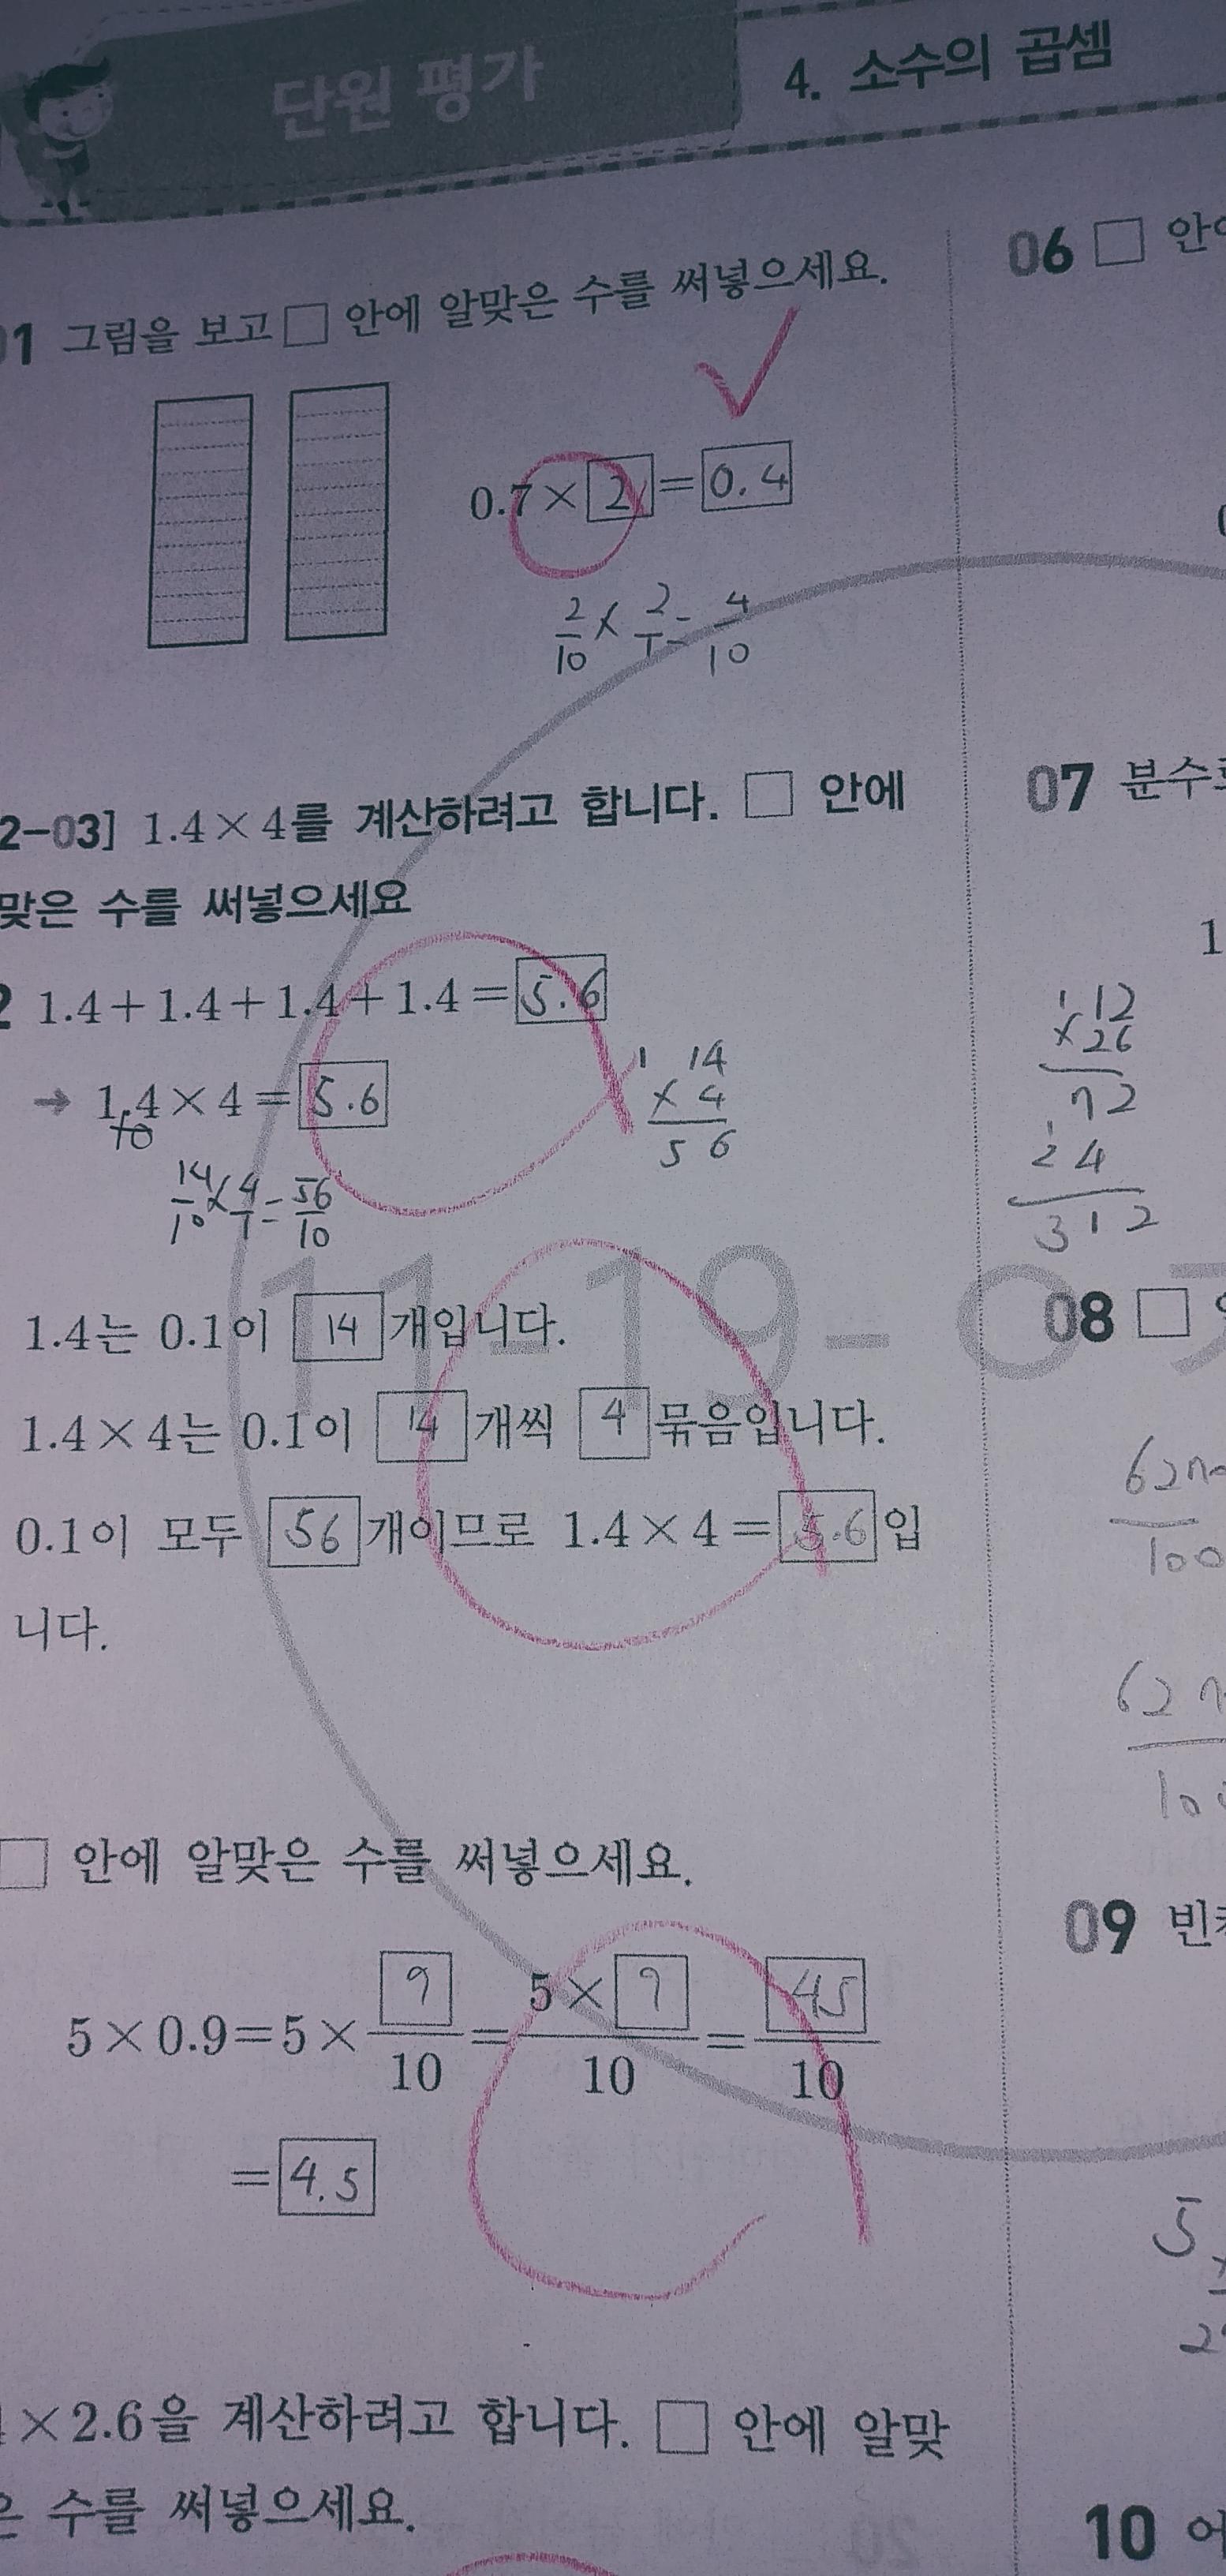 단원 평가
4. 소수의 곱셈
01 그림을 보고 □ 안에 알맞은 수를 써넣으세요.
0.7 × 2 = 0.4
2/10 × 2/1 = 4/10
2-03] 1.4×4를 계산하려고 합니다. □ 안에
맞은 수를 써넣으세요
2 1.4+1.4+1.4+1.4=5.6
→ 1.4×4=5.6
10
14/10 × 4/1 = 56/10
1 14
× 4
5 6
1.4는 0.1이 14 개입니다.
1.4×4는 0.1이 14 개씩 4 묶음입니다.
0.1이 모두 56 개이므로 1.4×4=5.6 입
니다.
11-19-0
□ 안에 알맞은 수를 써넣으세요.
5×0.9=5×9/10=5×9/10=45/10
=4.5
×2.6을 계산하려고 합니다. □ 안에 알맞
은 수를 써넣으세요.
06 □
07 분수
1
1 12
×26
72
1
24
312
08 □
62
100
62
09
5
10